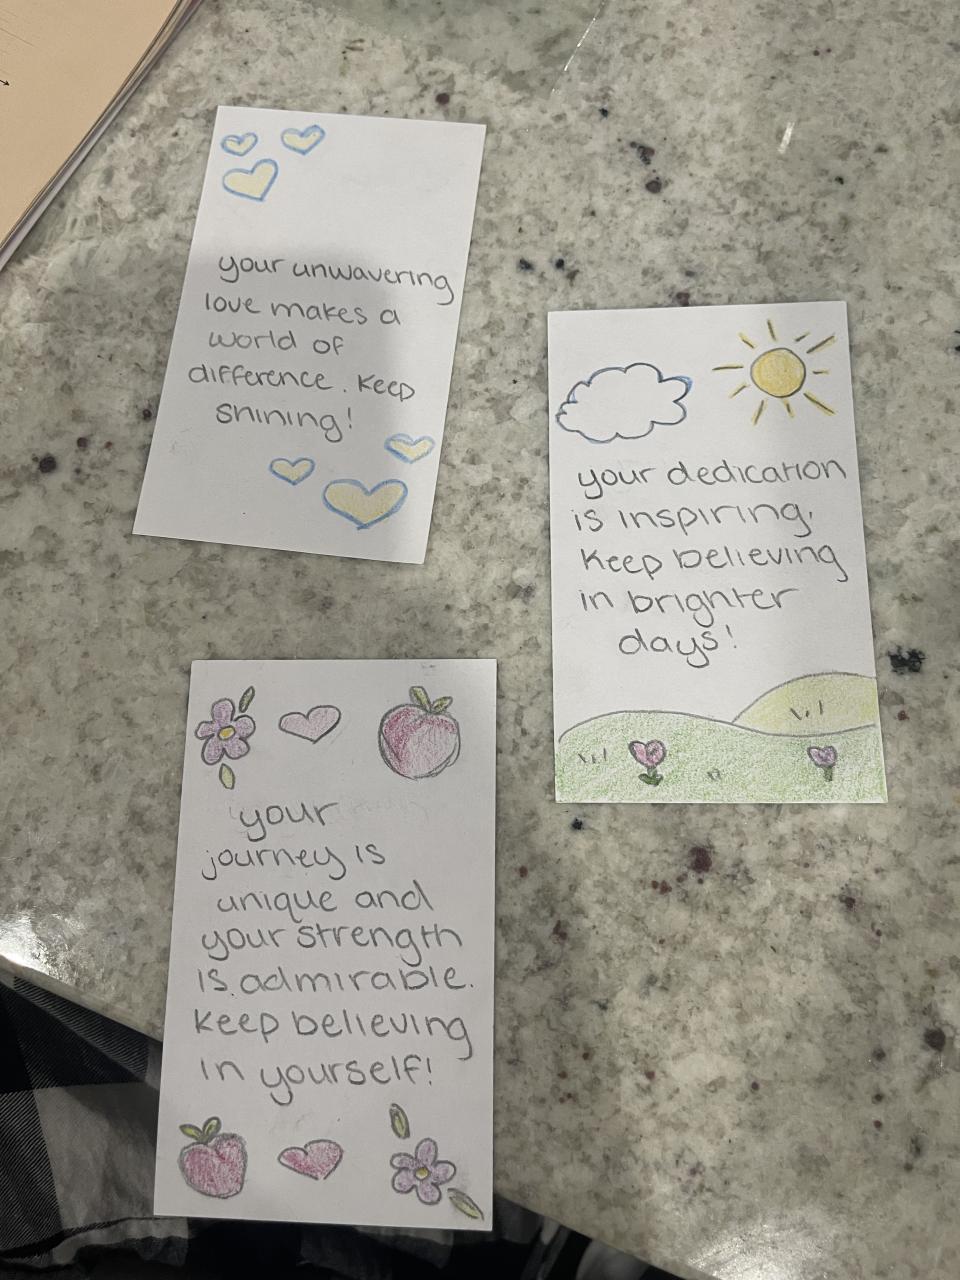 your unwavering
love makes a
world of
difference. Keep
shining!
your dedication
is inspiring.
Keep believing
in brighter
days!
your
journey is
unique and
your strength
is admirable.
Keep believing
in yourself!